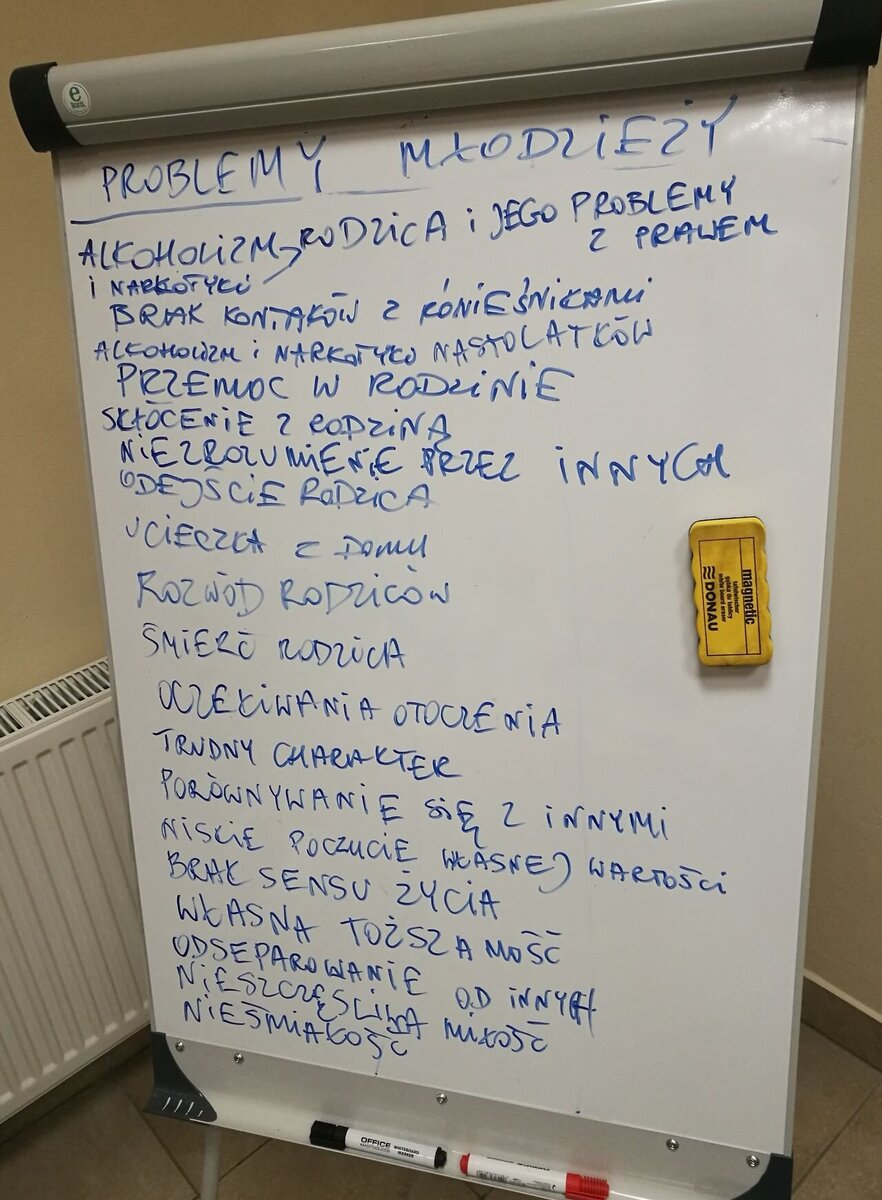 PROBLEMY MŁODZIEŻY
ALKOHOLIZM RODZICA i JEGO PROBLEMY
Z PRAWEM
i NARKOTYKI
BRAK KONTAKÓW Z RÓNIEŚNIKAMI
ALKOHOLIZM i NARKOTYKI NASTOLATKÓW
PRZEMOC W RODZINIE
SKŁÓCENIE Z RODZINĄ
NIEZROZUMIENIE PRZEZ INNYCH
ODEJŚCIE RODZICA
UCIECZKA Z DOMU
ROZWÓD RODZICÓW
ŚMIERĆ RODZICA
OCZEKIWANIA OTOCZENIA
TRUDNY CHARAKTER
PORÓWNYWANIE SIĘ Z INNYMI
NISKIE POCZUCIE WŁASNEJ WARTOŚCI
BRAK SENSU ŻYCIA
WŁASNA TOŻSZAMOŚĆ
ODSEPAROWANIE OD INNYCH
NIESZCZĘŚLIWA MIŁOŚĆ
NIEŚMIAŁOŚĆ
magnetic
DONAU
OFFICE
WHITEBOARD
MARKER